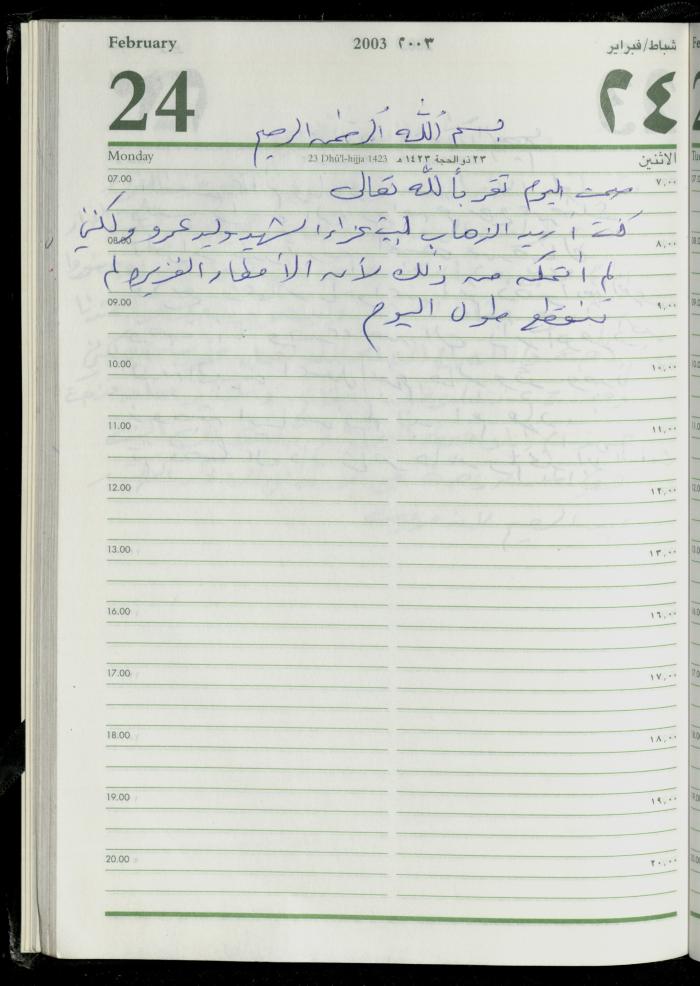 February 2003 ٢٠٠٣ شباط/فبراير
24 ٢٤
بسم الله الرحمن الرحيم
Monday 23 Dhū'l-hijja 1423 ٢٣ ذو الحجة ١٤٢٣ هـ الاثنين
07.00 ٧,٠٠
صمت اليوم تقرباً لله تعالى
كنت أريد الذهاب لبيت عزاء الشهيد وليد عمرو ولكنني
08.00 ٨,٠٠
لم أتمكن من ذلك لأن الأمطار الغزيرة لم
09.00 ٩,٠٠
تنقطع طول اليوم
10.00 ١٠,٠٠
11.00 ١١,٠٠
12.00 ١٢,٠٠
13.00 ١٣,٠٠
16.00 ١٦,٠٠
17.00 ١٧,٠٠
18.00 ١٨,٠٠
19.00 ١٩,٠٠
20.00 ٢٠,٠٠